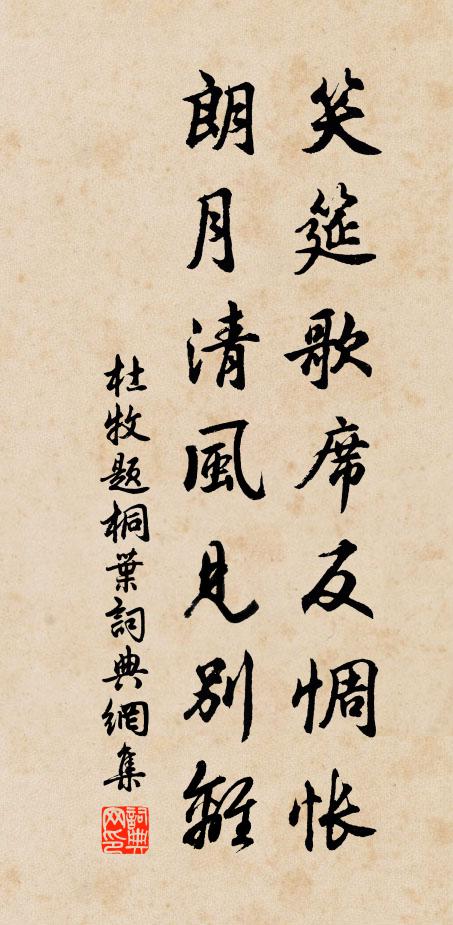 笑筵歌席反惆怅
朗月清風見别離
杜牧题桐葉詞典網集
詞典网印